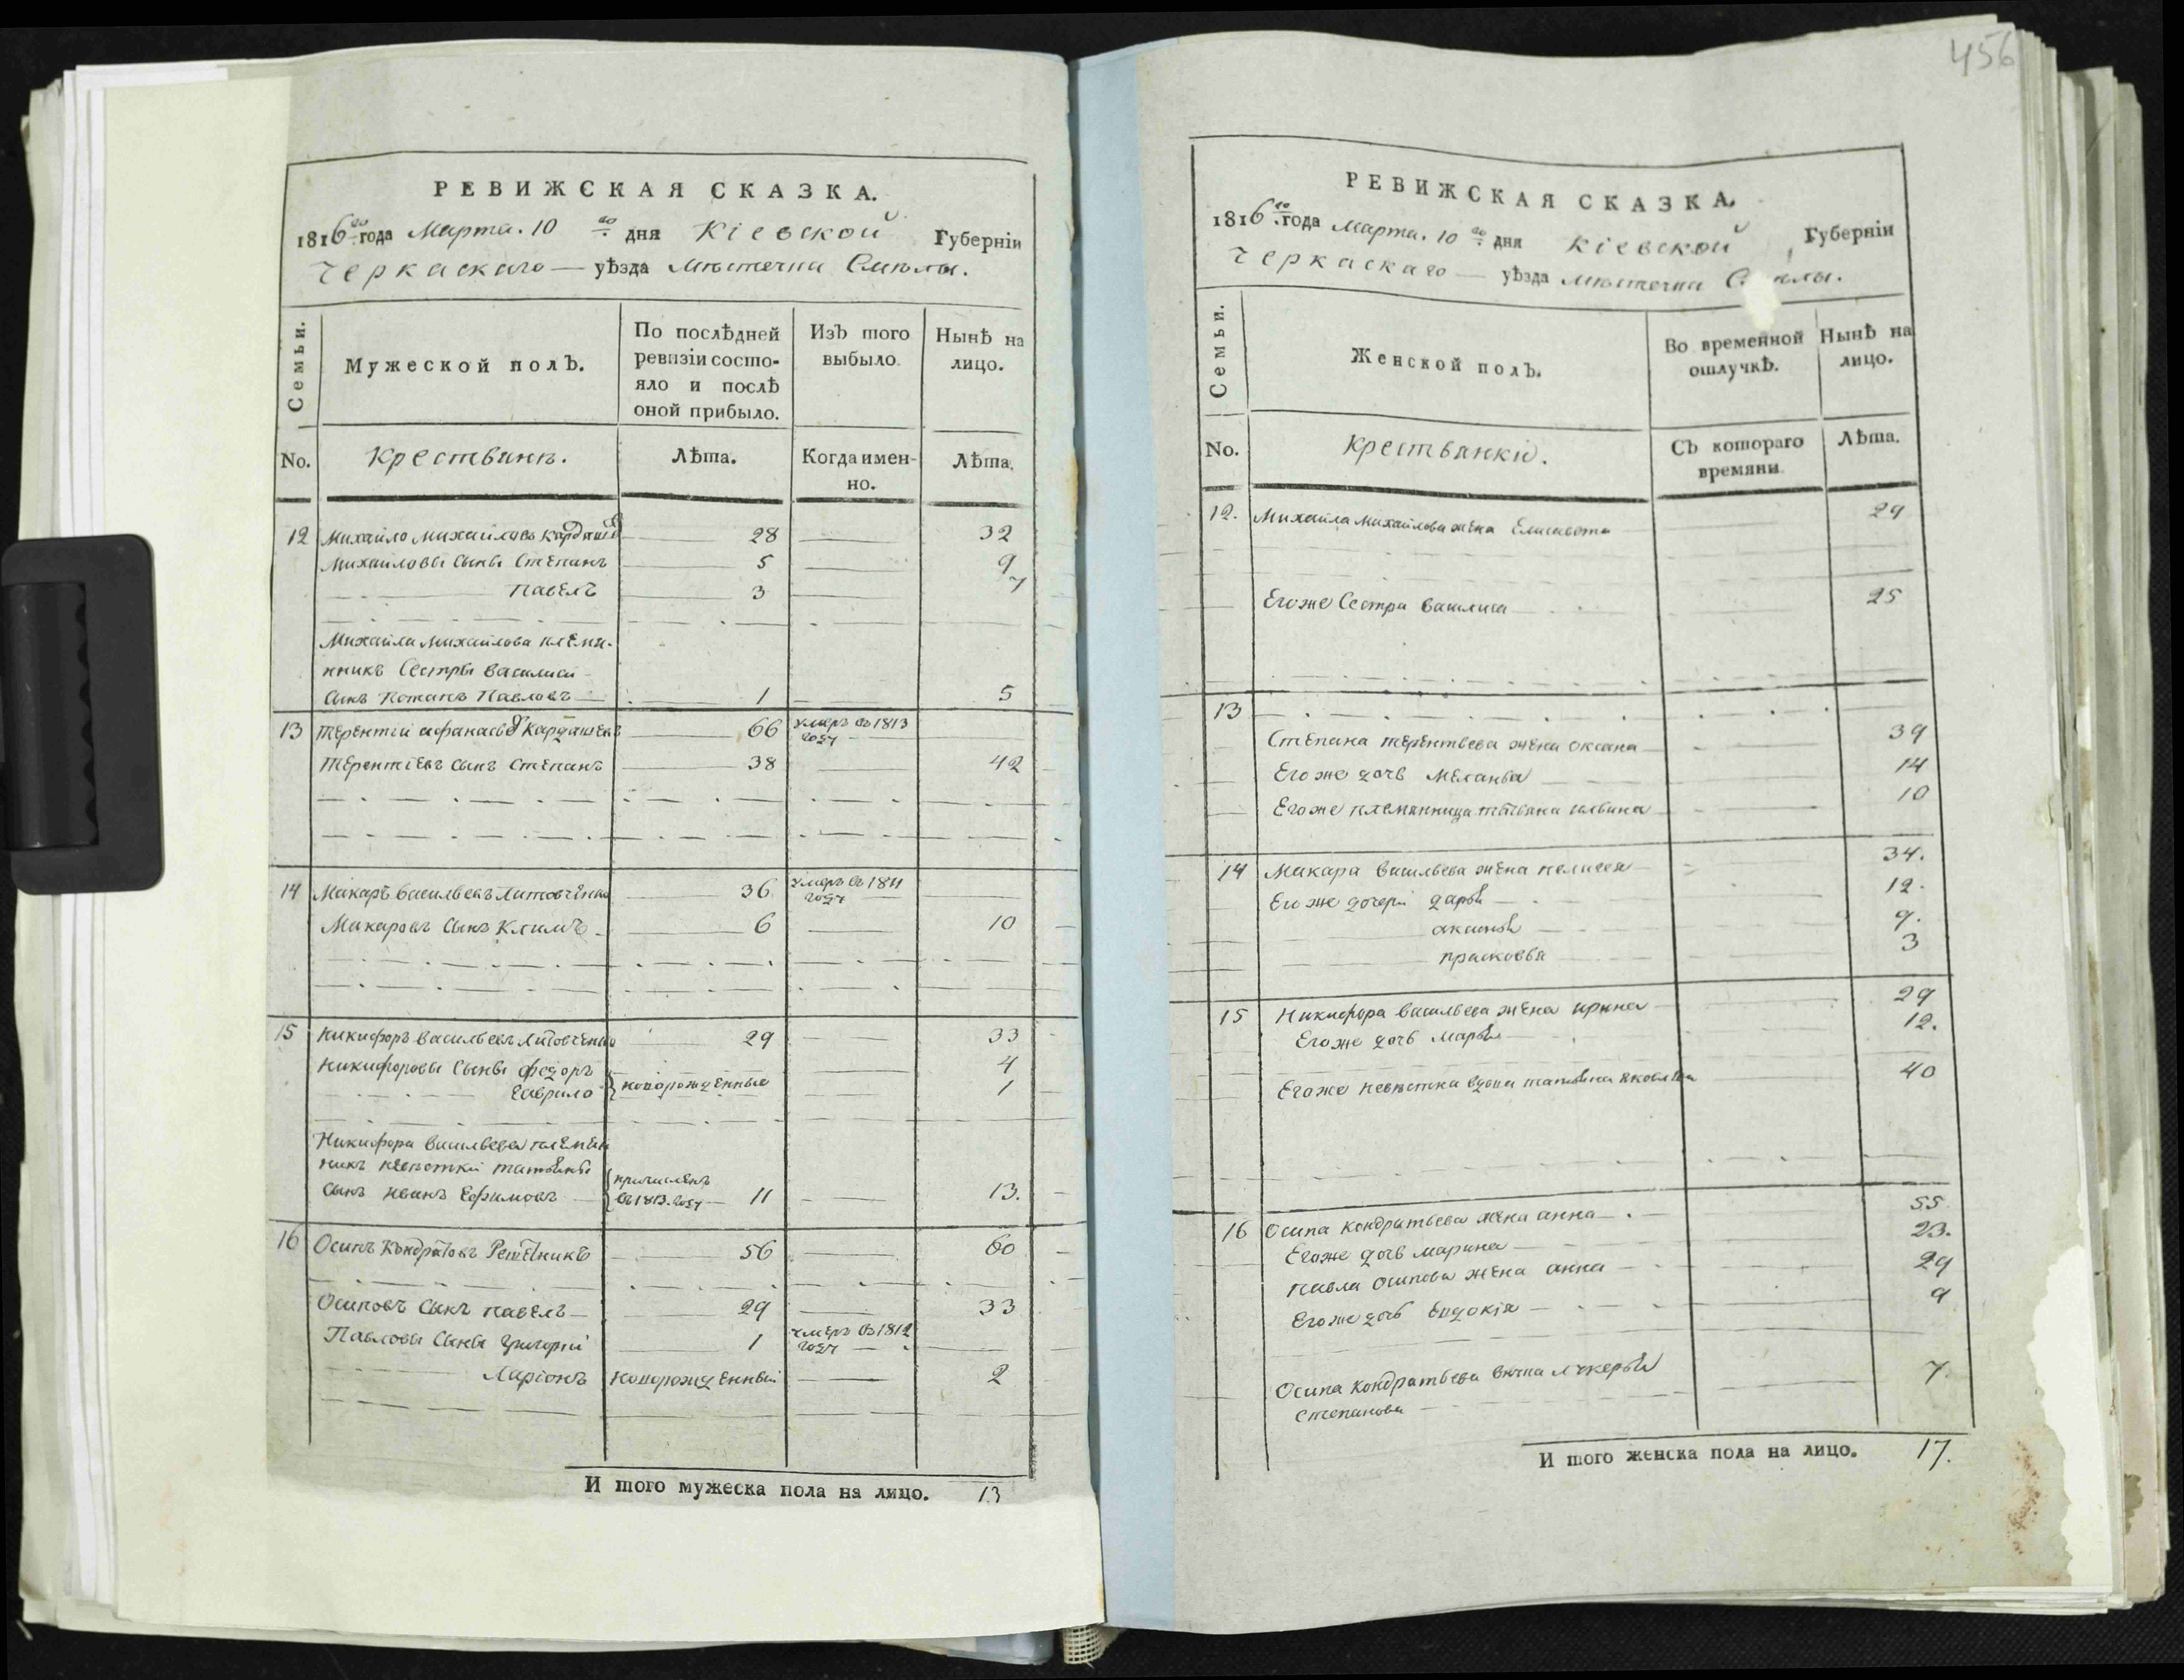 456
РЕВИЖСКАЯ СКАЗКА.
1816го года Марта. 10го дня Кіевской Губерніи
Черкаскаго — уѣзда мѣстечка Смѣлы.
Семьи.
Мужеской полЪ.
По послѣдней ревизіи состояло и послѣ оной прибыло.
ИзЪ того выбыло.
НынѢ на лицо.
No.
Крествянѣ.
Лѣта.
Когда именно.
Лѣта.
12 Михайло Михайловъ Кардашев 28 32
Михайловы Сыны Степанъ 5 9
Павелъ 3 7
Михайла Михайлова племя-
нникъ Сестры Василиси
Сынъ Потапъ Павловъ 1 5
13 Терентій Афанасьевъ Кардашевъ 66 умеръ въ 1813 году
Терентіевъ сынъ Степанъ 38 42
14 Макаръ Васильевъ Литовченко 36 умеръ въ 1811 году
Макаровъ Сынъ Климъ 6 10
15 Никифоръ Васильевъ Литовченко 29 33
Никифоровы Сыны Федоръ 4
Гаврило новорожденные 1
Никифора Васильева племян
никъ невѣстки татьяны
Сынъ Иванъ Ефимовъ причисленъ въ 1813. году 11 13.
16 Осипъ Кондратовъ Решетникъ 56 60
Осиповъ Сынъ Павелъ 29 33
Павловы Сыны Григорій 1 умеръ въ 1812 году
Ларіонъ новорожденный 2
И того мужеска пола на лицо. 13
РЕВИЖСКАЯ СКАЗКА.
1816го года Марта. 10го дня Кіевской Губерніи
Черкаскаго — уѣзда мѣстечка С ѣлы.
Семьи.
Женской полЪ.
Во временной отлучкѢ.
НынѢ на лицо.
No.
Крествянки.
СЪ котораго времяни
Лѣта.
12. Михайла Михайлова жена Елисавета 29
Егоже Сестра Василиса 25
13
Степана терентьева жена оксана 39
Егоже дочь Меланья 14
Егоже племянница татьяна ильина 10
14 Макара Васильева жена пелагея 34.
Егоже дочери дарья 12.
аксинья 9.
прасковья 3
15 Никифора Васильева жена ирина 29
Егоже дочь марья 12.
Егоже невѣстка вдова татьяна яковлева 40
16 Осипа кондратьева жена анна 55
Егоже дочь марина 23.
павла осипова жена анна 29
Егоже дочь Евдокія 9
Осипа кондратьева внучка лукерья 7
степанова
И того женска пола на лицо. 17.